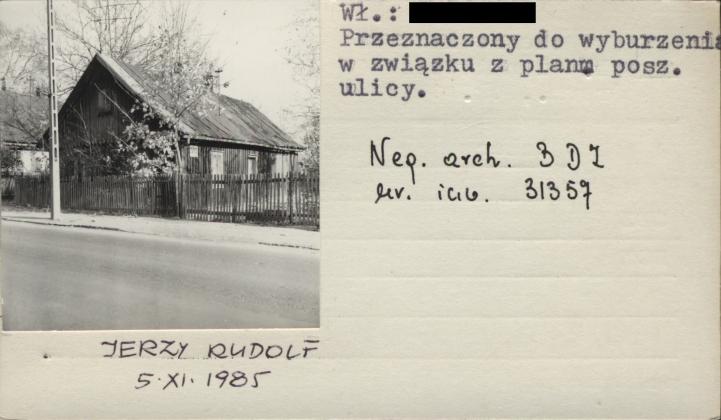 Wł.:
Przeznaczony do wyburzenia
w związku z planm posz.
ulicy.
Neg. arch. BDZ
nr. inw. 31357
JERZY RUDOLF
5.XI.1985